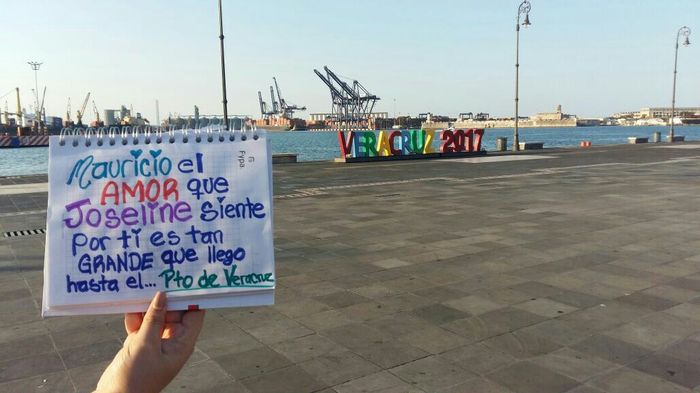 Mauricio el
AMOR que
Joseline Siente
Por ti es tan
GRANDE que llego
hasta el... Pto de Veracruz
Fypa
VERACRUZ 2017